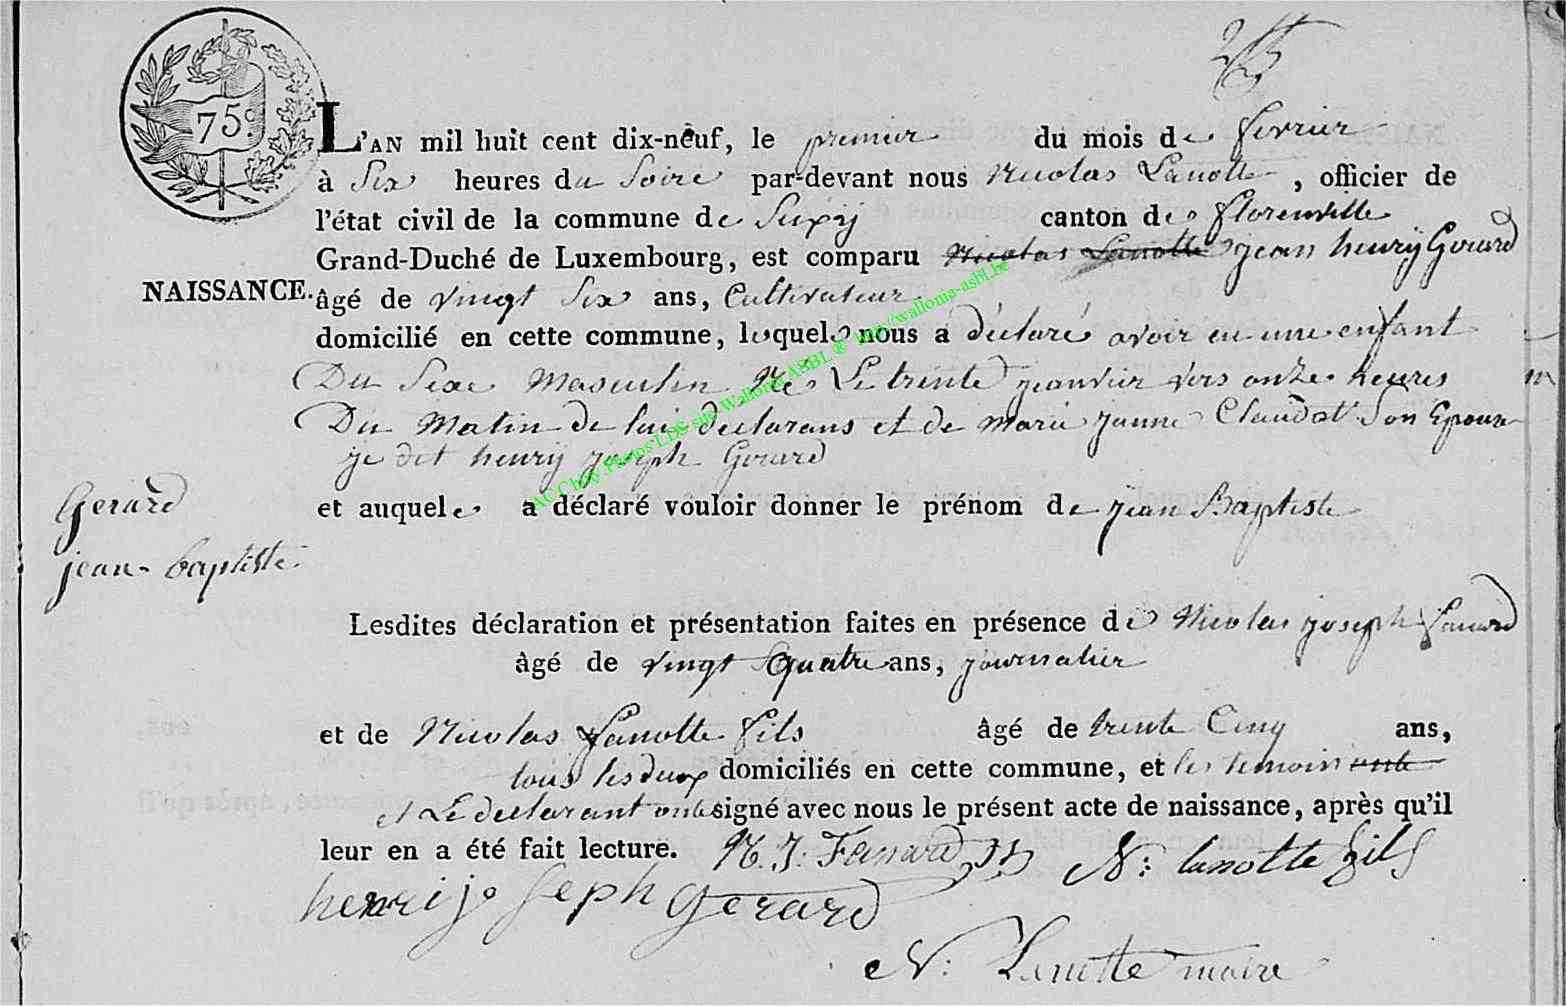 75c.
L'AN mil huit cent dix-neuf, le premier du mois de fevrier
à Six heures du Soire par-devant nous Nicolas Lanotte, officier de
l'état civil de la commune de Suxÿ canton de florenville
Grand-Duché de Luxembourg, est comparu Nicolas Lanotte jean henrÿ Gerard
NAISSANCE. âgé de vingt Six ans, Cultivateur
domicilié en cette commune, lequel nous a déclaré avoir eu une enfant
Du Sexe Masculin Né Le trente jeanvier vers onze heures
Du Matin de lui declarans et de marie jeanne Claudot Son Epouse
je dit henry joseph Gerard
et auquele a déclaré vouloir donner le prénom de jean Baptiste
Gerard
jean-baptiste
Lesdites déclaration et présentation faites en présence de Nicolas joseph fanard
âgé de vingt quatre ans, journalier
et de Nicolas Lanotte fils âgé de trente Cinq ans,
tous les deux domiciliés en cette commune, et les temoins onts
et Le declarant onts signé avec nous le présent acte de naissance, après qu'il
leur en a été fait lecture. N. J. Fanard N: lanotte fils
henri joseph gerard
N: Lanotte maire
AC Chiny. Photos LDS site Wallonia ASBL © http://wallonia-asbl.be